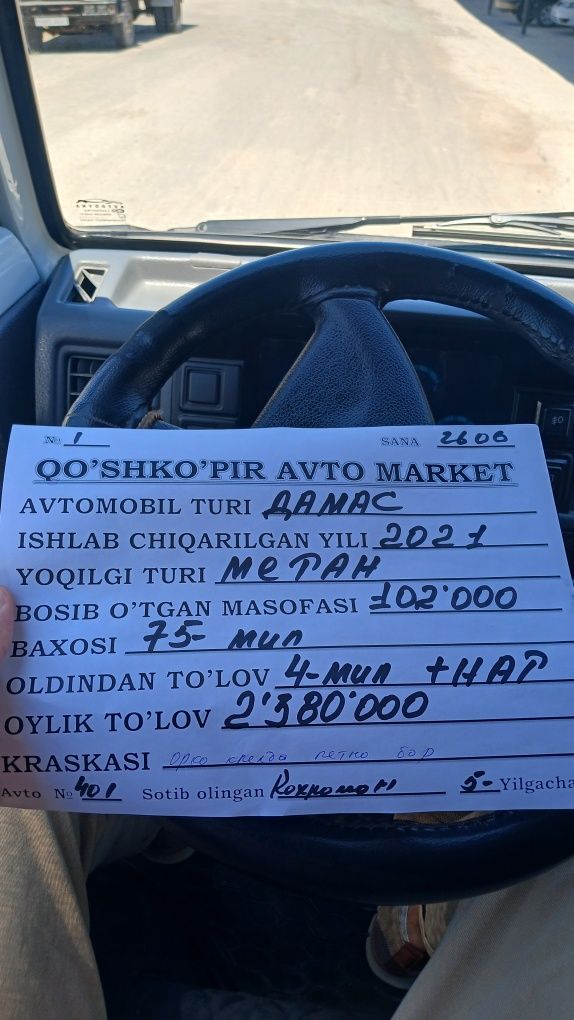 № 1 SANA 26 06
QO'SHKO'PIR AVTO MARKET
AVTOMOBIL TURI ДАМАС
ISHLAB CHIQARILGAN YILI 2021
YOQILGI TURI МЕТАН
BOSIB O'TGAN MASOFASI 102'000
BAXOSI 75- мил
OLDINDAN TO'LOV 4-мил +НАР
OYLIK TO'LOV 2'380'000
KRASKASI Орка крелда петно бор
Avto № 401 Sotib olingan 5- Yilgacha